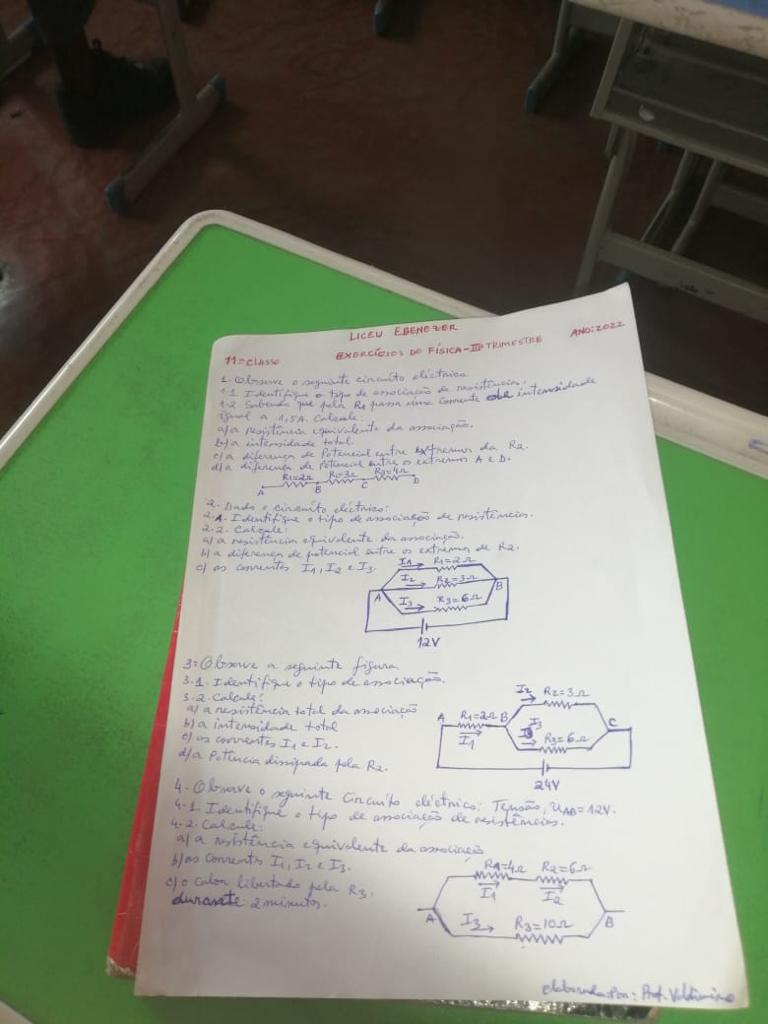 LICEU EBENEZER
11ª classe EXERCÍCIOS DE FÍSICA-III TRIMESTRE ANO: 2022
1. Observe o seguinte circuito eléctrico
1.1 Identifique o tipo de associação de resistências.
1.2. Sabendo que pela R1 passa uma corrente de intensidade
igual a 1,5A. Calcule:
a) a resistência equivalente da associação.
b) a intensidade total
c) a diferença de Potencial entre extremos da R2.
d) a diferença de Potencial entre os extremos A e D.
R1=2Ω R2=3Ω R3=4Ω
A B C D
2. Dado o circuito eléctrico:
2.1. Identifique o tipo de associação de resistências.
2.2. Calcule:
a) a resistência equivalente da associação.
b) a diferença de potencial entre os extremos de R2.
c) as correntes I1, I2 e I3.
I1 R1=2Ω
I2 R2=3Ω
A B
I3 R3=6Ω
12V
3. Observe a seguinte figura
3.1. Identifique o tipo de associação.
3.2. Calcule:
a) a resistência total da associação
b) a intensidade total
c) as correntes I1 e I2.
d) a Potência dissipada pela R2.
I2 R2=3Ω
A R1=2Ω B I3 C
I1 R3=6Ω
24V
4. Observe o seguinte Circuito eléctrico: Tensão, UAB=12V.
4.1. Identifique o tipo de associação de resistências.
4.2. Calcule:
a) a resistência equivalente da associação
b) as correntes I1, I2 e I3.
c) o calor libertado pela R3.
durante 2 minutos.
R1=4Ω R2=6Ω
I1 I2
A I3 R3=10Ω B
elaborado por: Prof. Valdimiro